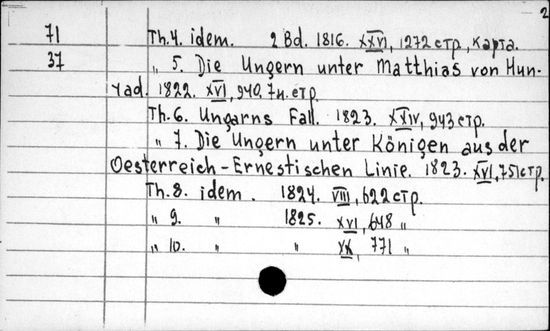 2
71 Th.4. idem. 2 Bd. 1816. XXVI, 1272 стр., карта.
37 „ 5. Die Ungern unter Matthias von Hun-
yad. 1822. XVI, 940, 7н. стр.
Th.6. Ungarns Fall. 1823. XXIV, 943 стр.
„ 7. Die Ungern unter Königen aus der
Oesterreich-Ernestischen Linie. 1823. XVI, 751 стр.
Th.8. idem. 1824. VIII, 622 стр.
„ 9. „ 1825. XVI, 648 „
„ 10. „ „ XX, 771 „